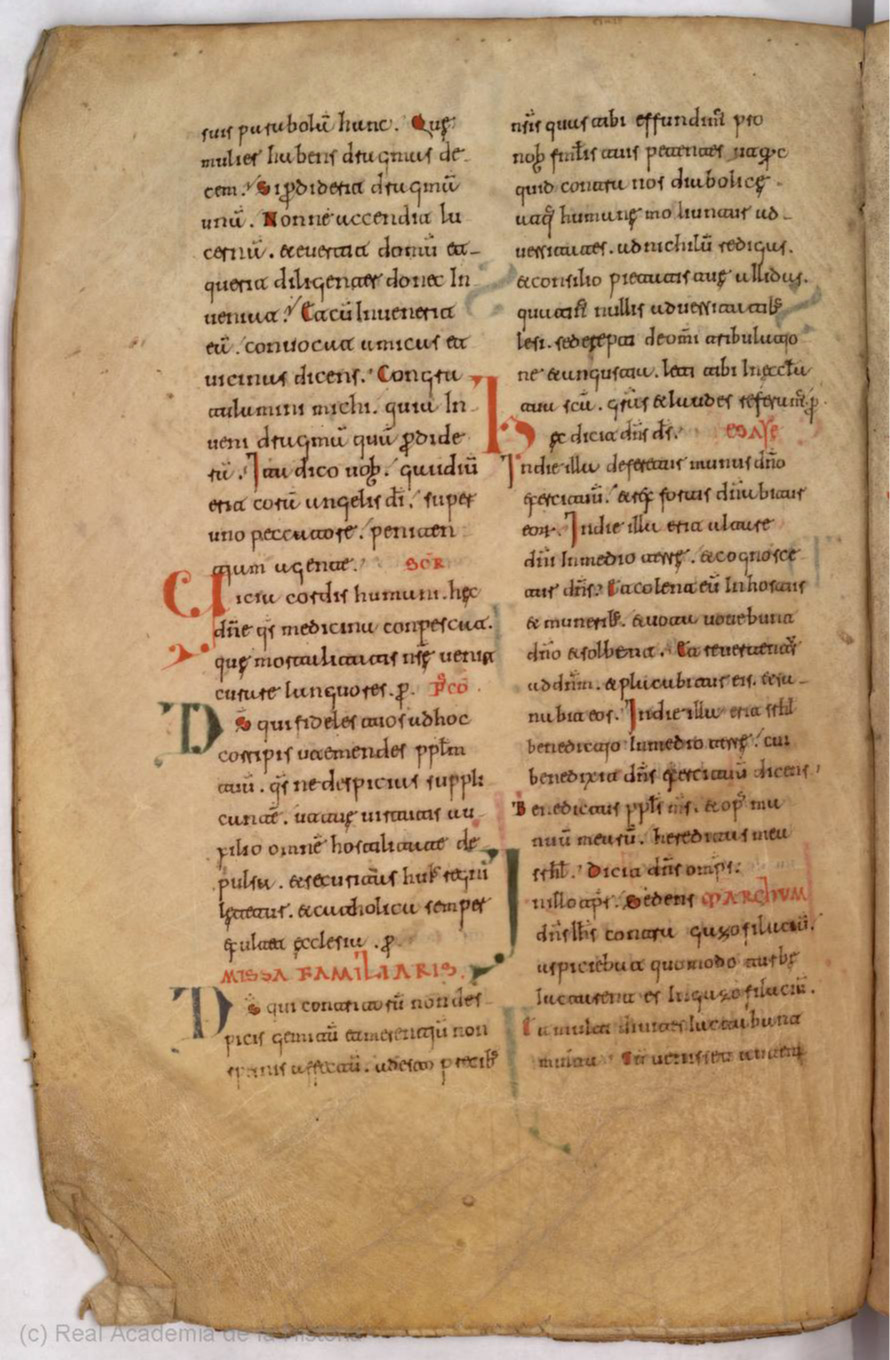 suis parabolā hanc. Quę
mulier habens dragmas de-
cem. Si p̱dideriꞇ dragmā
unā. Nonne accendiꞇ lu
cernā. & euertiꞇ domū eꞇ-
queriꞇ diligenter donec In
ueniaꞇ. Eꞇ cū Inueneriꞇ
eā. conuocaꞇ amicas eꞇ
uicinas dicens. Congra
tulamini michi. quia In
ueni dragmā quā p̱dide
rā. Ita dico uob̄. gaudiū
eriꞇ corā angelis dī. super
uno peccatore. peniten
tiam agente. SCR
Uicia cordis humani. hęc
dñe qs̄ medicina conpescaꞇ.
quę mortalitatis nr̄ę ueniꞇ
curare languores. p̱. PꝰCO
Ds̄ qui fideles tuos ad hoc
corripis ut emendes pplm̄
tuū. qs̄ ne despicias suppli
cantē. ut tuę uirtutis au
xilio omnē hostilitatē de
pulsa. & securitatis huic regnū
lęteꞇur. & catholica semper
exulteꞇ ęcclesia. p̱.
MISSA FAMILIARIS
Ds̄ qui contritorū non des
picis gemitū & merentiū non
spernis affectū. adesto precib;
nr̄is quas tibi effundim̄ pro
nob̄ famłis tuis petentes ut q̄c
quid contra nos diabolicę
atq̄ humanę moliuntur ad
uersitates. ad nichilū redigas.
& consilio pietatis tuę allidas.
quatin̄ nullis aduersitatib;
lesi. sed erepti de omī tribulatio
ne & angustia. leti tibi In ęcclā
tua scā. grās & laudes referam̄. p̱
Hęc diciꞇ dns̄ ds̄. ESAYE
In die illa
eos. In die illa eriꞇ altare
dñi In medio terrę. & cognosce
tur dns̄. Eꞇ colent eū In hostiis
& munerib;. & uota uouebunꞇ
dño & solbenꞇ. Eꞇ reuertentur
ad dñm. & placabitur eis. & sa-
nabiꞇ eos. In die illa eriꞇ isrł
benedictio In medio terrę. cui
benedixiꞇ dns̄ exercituū dicens.
Benedictus ppłs ms̄. & op̄ ma
nuū mearū. hereditas mea
isrł. Diciꞇ dns̄ omps̄.
In illo tp̄r. Sedens MARCHUM
dns̄ ihs̄ contra gazofilaciū.
aspiciebaꞇ quomodo turbę
Iactarenꞇ es In gazofilaciū.
Eꞇ multi diuites Iactabanꞇ
multa.